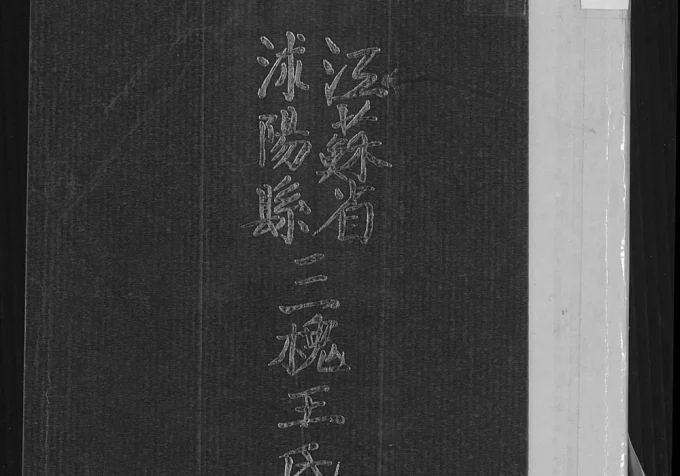 江蘇省
沭陽縣
三槐王氏